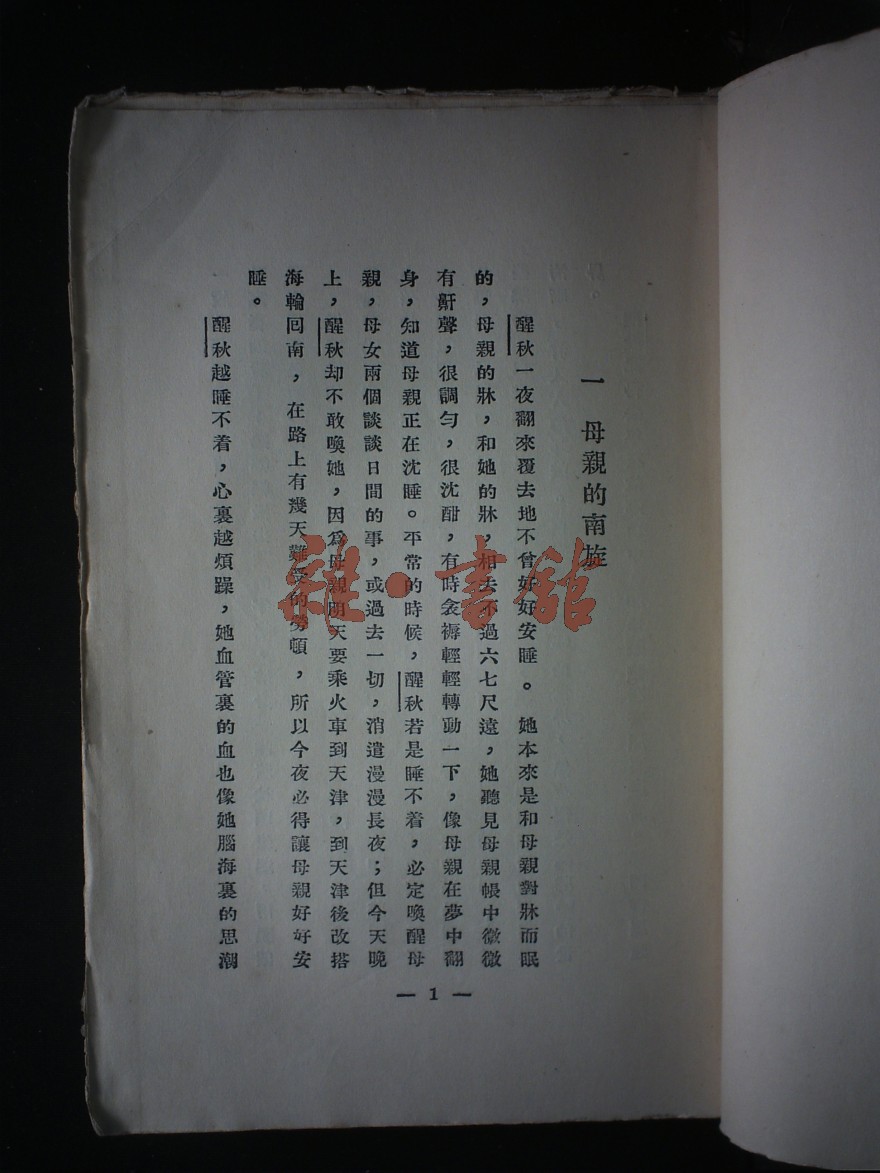 一 母親的南旋
醒秋一夜翻來覆去地不曾好好安睡。她本來是和母親對牀而眠
的，母親的牀，和她的牀，相去不過六七尺遠，她聽見母親帳中微微
有鼾聲，很調勻，很沈酣，有時衾褥輕輕轉動一下，像母親在夢中翻
身，知道母親正在沈睡。平常的時候，醒秋若是睡不着，必定喚醒母
親，母女兩個談談日間的事，或過去一切，消遣漫漫長夜；但今天晚
上，醒秋却不敢喚她，因爲母親明天要乘火車到天津，到天津後改搭
海輪回南，在路上有幾天難受的勞頓，所以今夜必得讓母親好好安
睡。
醒秋越睡不着，心裏越煩躁，她血管裏的血也像她腦海裏的思潮
— 1 —
雜·書館